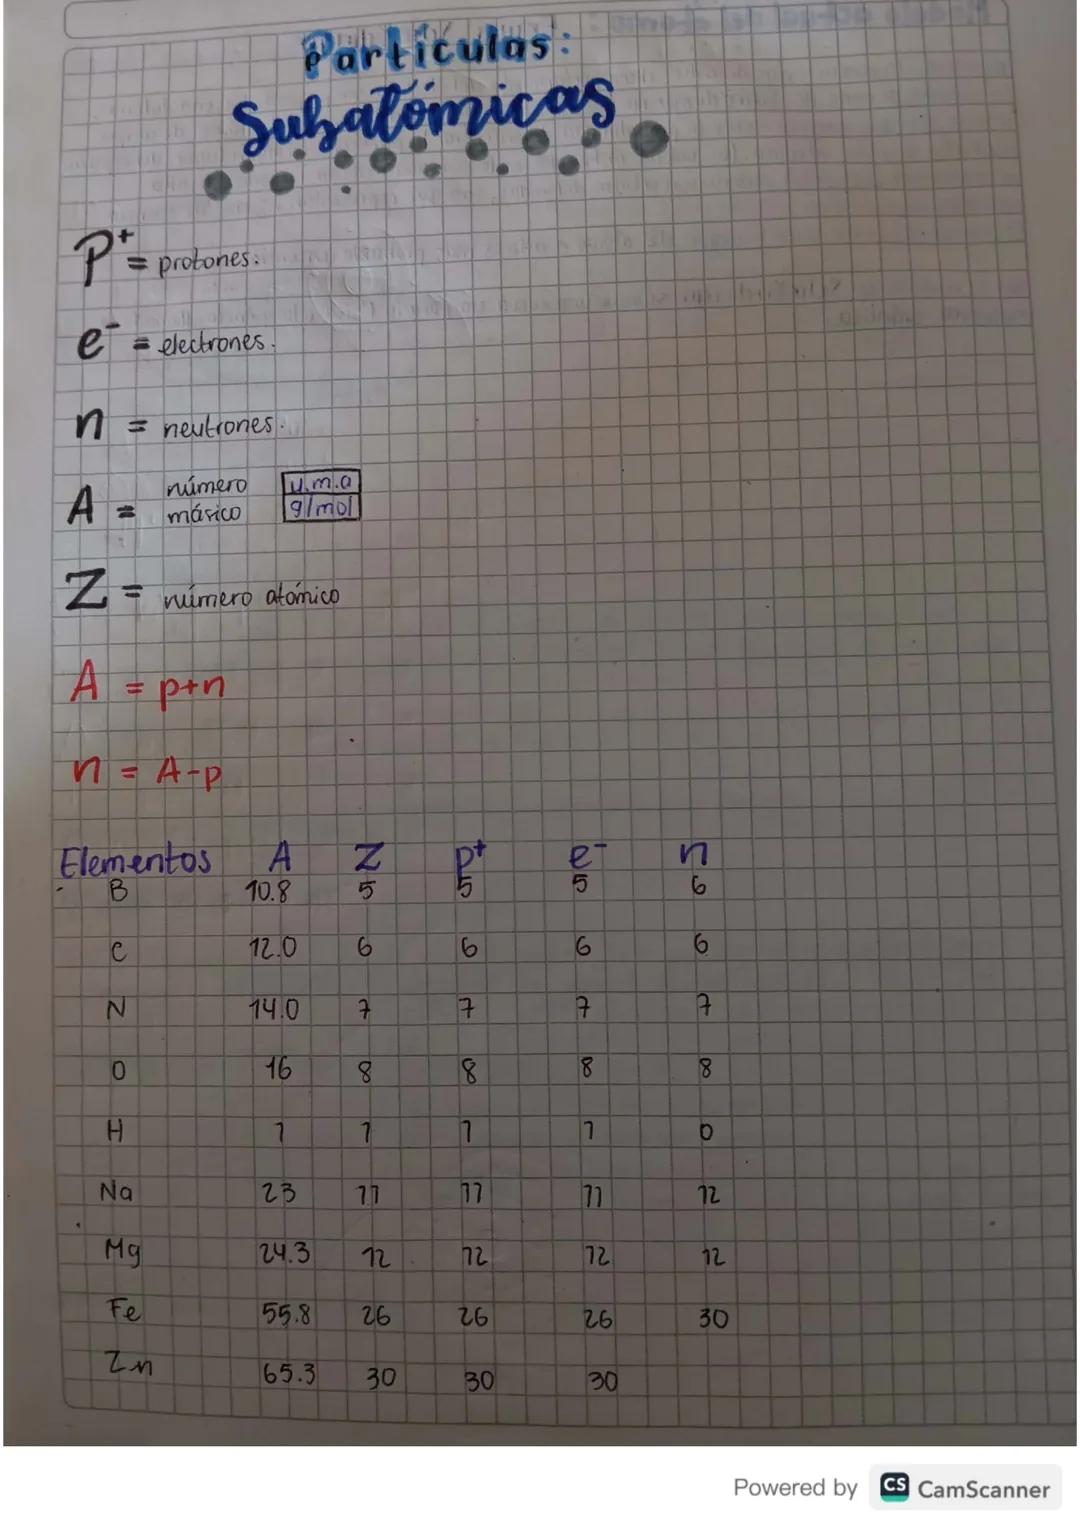 Partículas:
Subatómicas
P+ = protones.
e- = electrones.
n = neutrones.
A = número másico u.m.a g/mol
Z = número atómico
A = p+n
n = A-p
Elementos A Z p+ e- n
B 10.8 5 5 5 6
C 12.0 6 6 6 6
N 14.0 7 7 7 7
O 16 8 8 8 8
H 1 1 1 1 0
Na 23 11 11 11 12
Mg 24.3 12 12 12 12
Fe 55.8 26 26 26 30
Zn 65.3 30 30 30
Powered by CS CamScanner